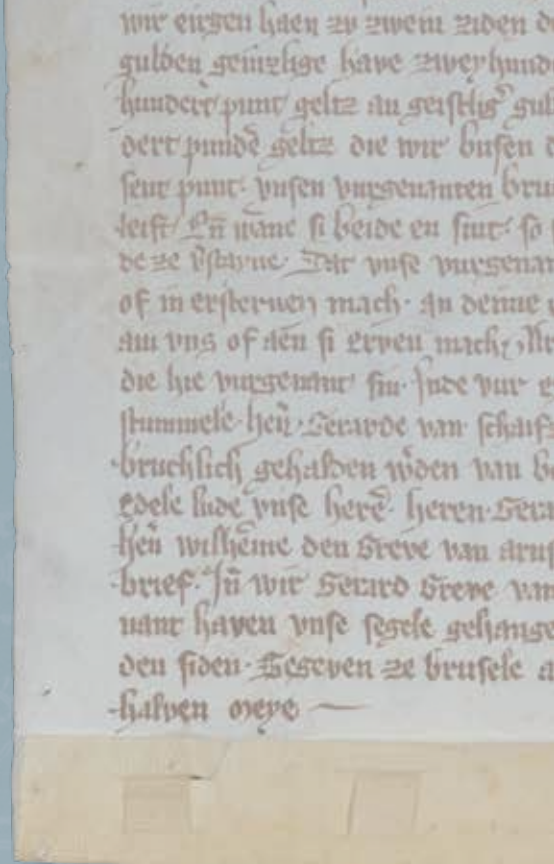 wir eirgen haen zv zwein ziden d
gulden geinzlige have zweyhund
hundert punt geltz an geistlig gul
dert punde geltz die wir busen d
sent punt vnsen vurgenanten bru
leift En wanc si beide en sint so
de ze Dat vnse vurgenan
of in ersterven mach an deme
an vns of aen si erven mach
die hie vurgenant sin Inde vur
stummele her Gerarde van schaif
bruchlich gehalden wden van b
edele lude vnse here heren Gera
hen wilheme den Greve van arns
brief In wir Gerard Greve van
uant haven vnse segele gehange
den siden Gegeven ze brusele a
halven meye